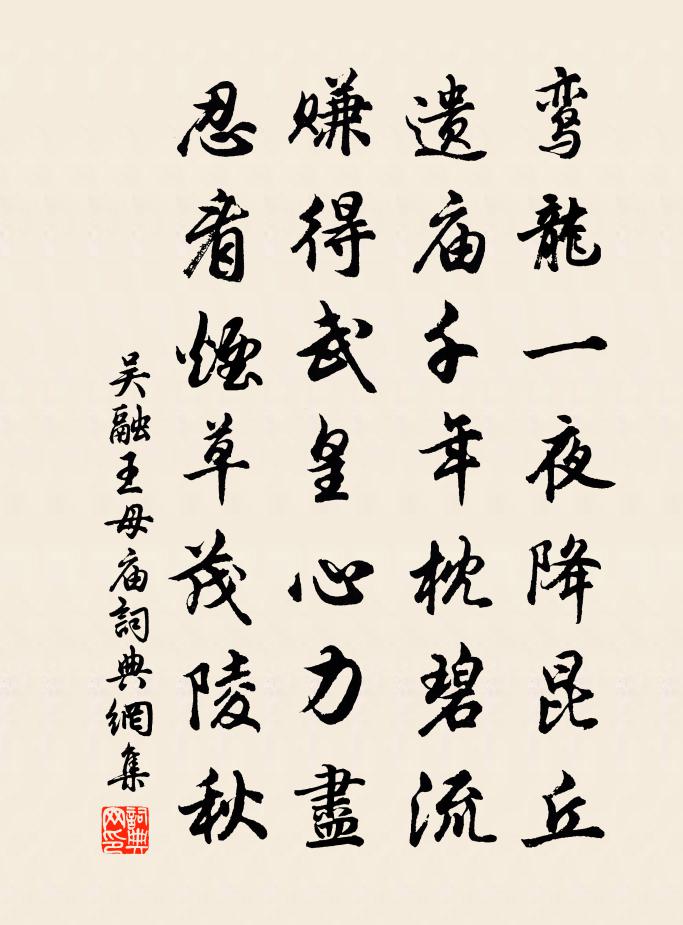 鸾龍一夜降昆丘
遗庙千年枕碧流
赚得武皇心力盡
忍看煙草茂陵秋
吴融王母庙詞典網集
詞典网印